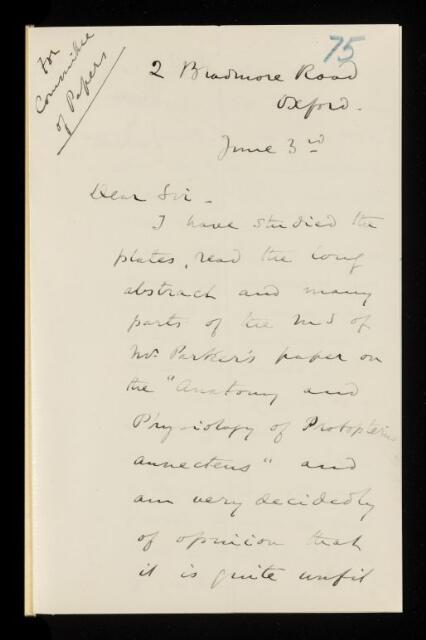 For
Committee
of Papers
75
2 Bradmore Road
Oxford.
June 3rd
Dear Sir -
I have studied the
plates, read the long
abstract and many
parts of the MS of
Mr Parker's paper on
the "Anatomy and
Physiology of Protopterus
annectens" and
am very decidedly
of opinion that
it is quite unfit